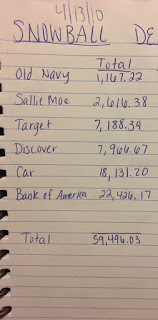 4/13/10
SNOWBALL DE
Total
Old Navy 1,167.22
Sallie Mae 2,616.38
Target 7,188.39
Discover 7,966.67
Car 18,131.20
Bank of America 22,426.17
Total 59,496.03